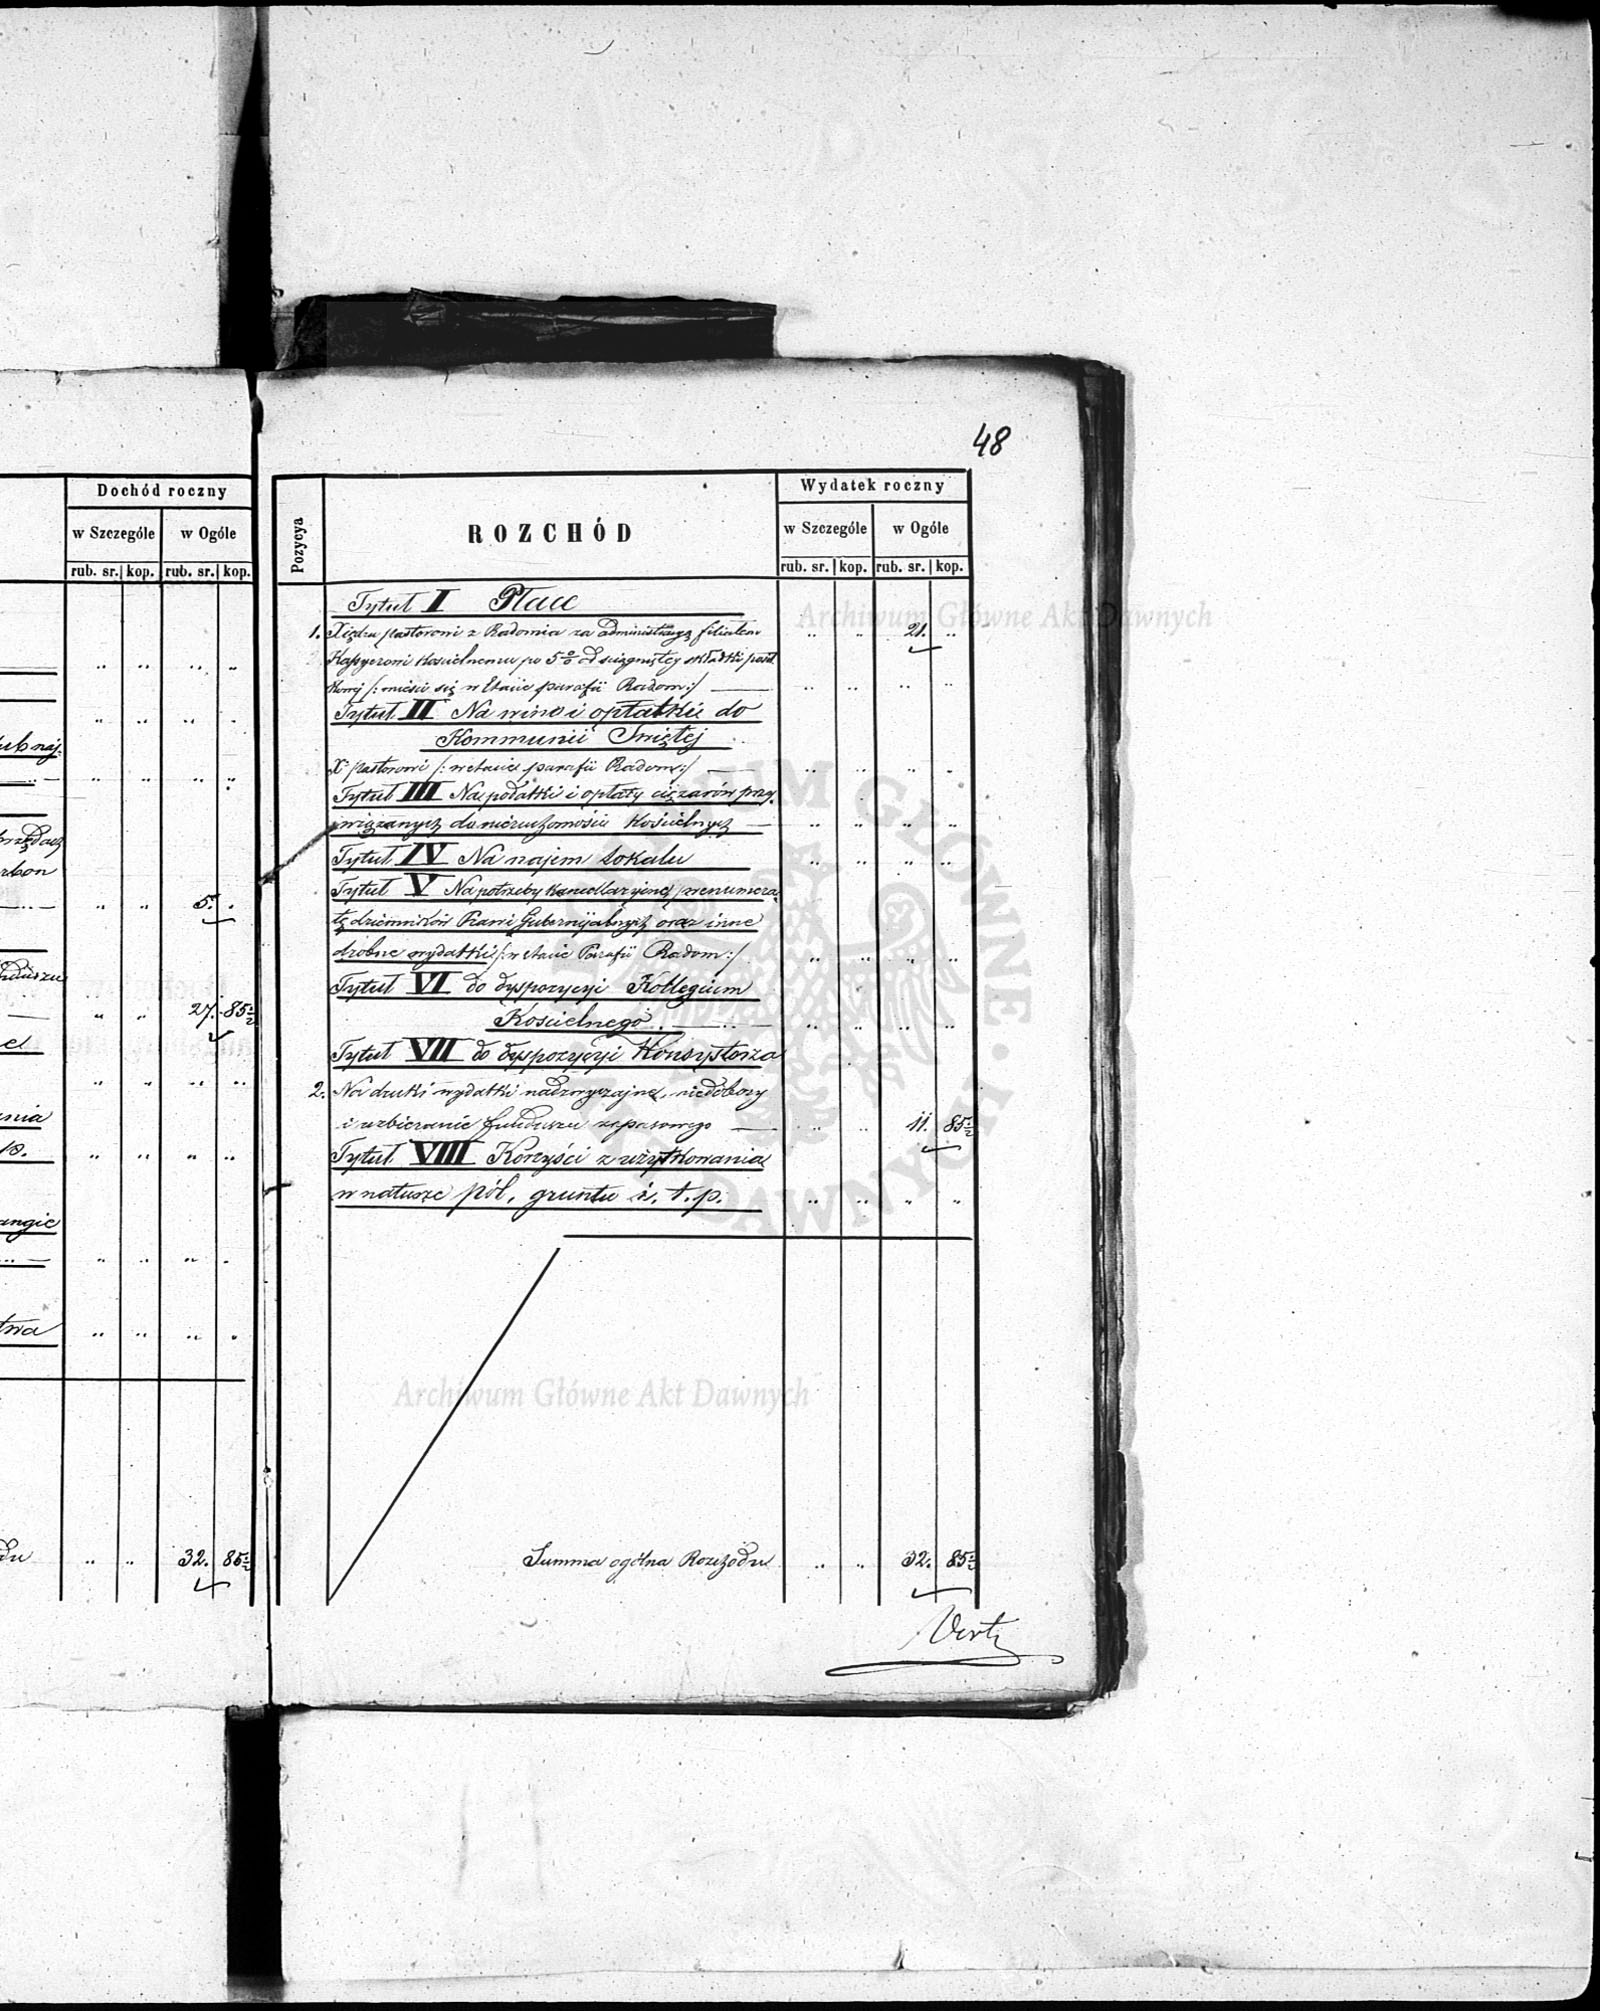 48
Dochód roczny
w Szczególe w Ogóle
rub. sr. kop. rub. sr. kop.
5. "
27. 85 1/2
32. 85 1/2
Pozycya ROZCHÓD Wydatek roczny
w Szczególe w Ogóle
rub. sr. kop. rub. sr. kop.
Tytuł I Płace
1. Xiędzu pastorowi z Radomia za administracyą filiałem " " 21. "
Kassyerowi Kościelnemu po 5 % od ściągniętej składki
/: mieści się w Etacie parafii Radom :/ — " " " "
Tytuł II Na wino i opłatki do
Kommunii Świętej
X. Pastorowi /: w etacie parafii Radom :/ — " " " "
Tytuł III Na podatki i opłaty ciężarów przy-
wiązanych do nieruchomości Kościelnych — " " " "
Tytuł IV Na najem Lokalu " " " "
Tytuł V Na potrzeby Kancellaryjne, prenumera-
tę dzienników Praw i Gubernijalnych oraz inne
drobne wydatki /: w etacie Parafii Radom :/ " " " "
Tytuł VI do dyspozycyi Kollegium
Kościelnego. — " " " "
Tytuł VII do dyspozycyi Konsystorza
2. Na druki wydatki nadzwyczajne, niedobory
i uzbieranie funduszu zapasowego — " " 11. 85 1/2
Tytuł VIII Korzyści z użytkowania
w naturze pól, gruntu i. t. p. " " " "
Summa ogólna Rozchodu " " 32. 85 1/2
Vert
Archiwum Główne Akt Dawnych
Archiwum Główne Akt Dawnych